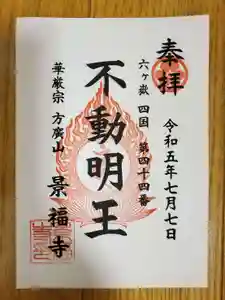 奉拝
六ヶ嶽 四国 第四十四番
令和五年七月七日
不動明王
華厳宗 方廣山
景福寺